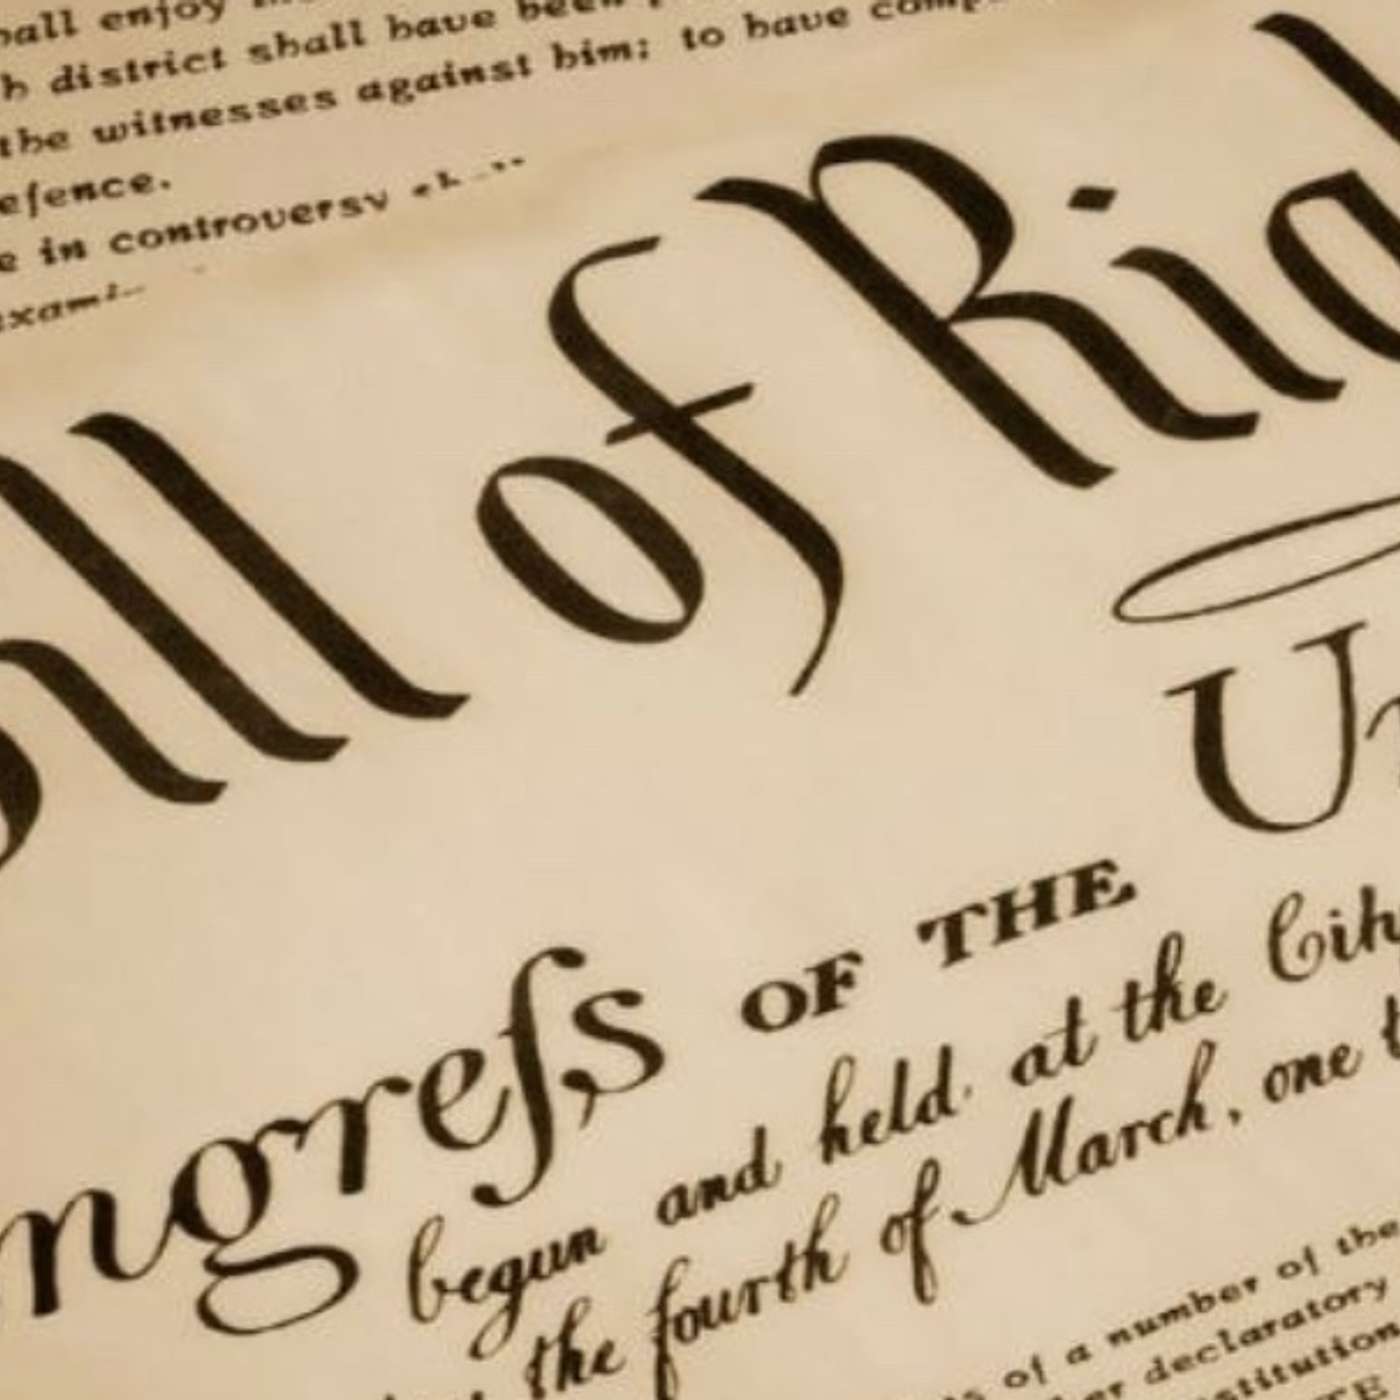 shall enjoy
h district shall have been
the witnesses against him; to have
efence.
e in controversy
Bill of Rig
ngreſs OF THE Un
begun and held at the City
the fourth of March, one t
s of a number of the
er declaratory
stitution